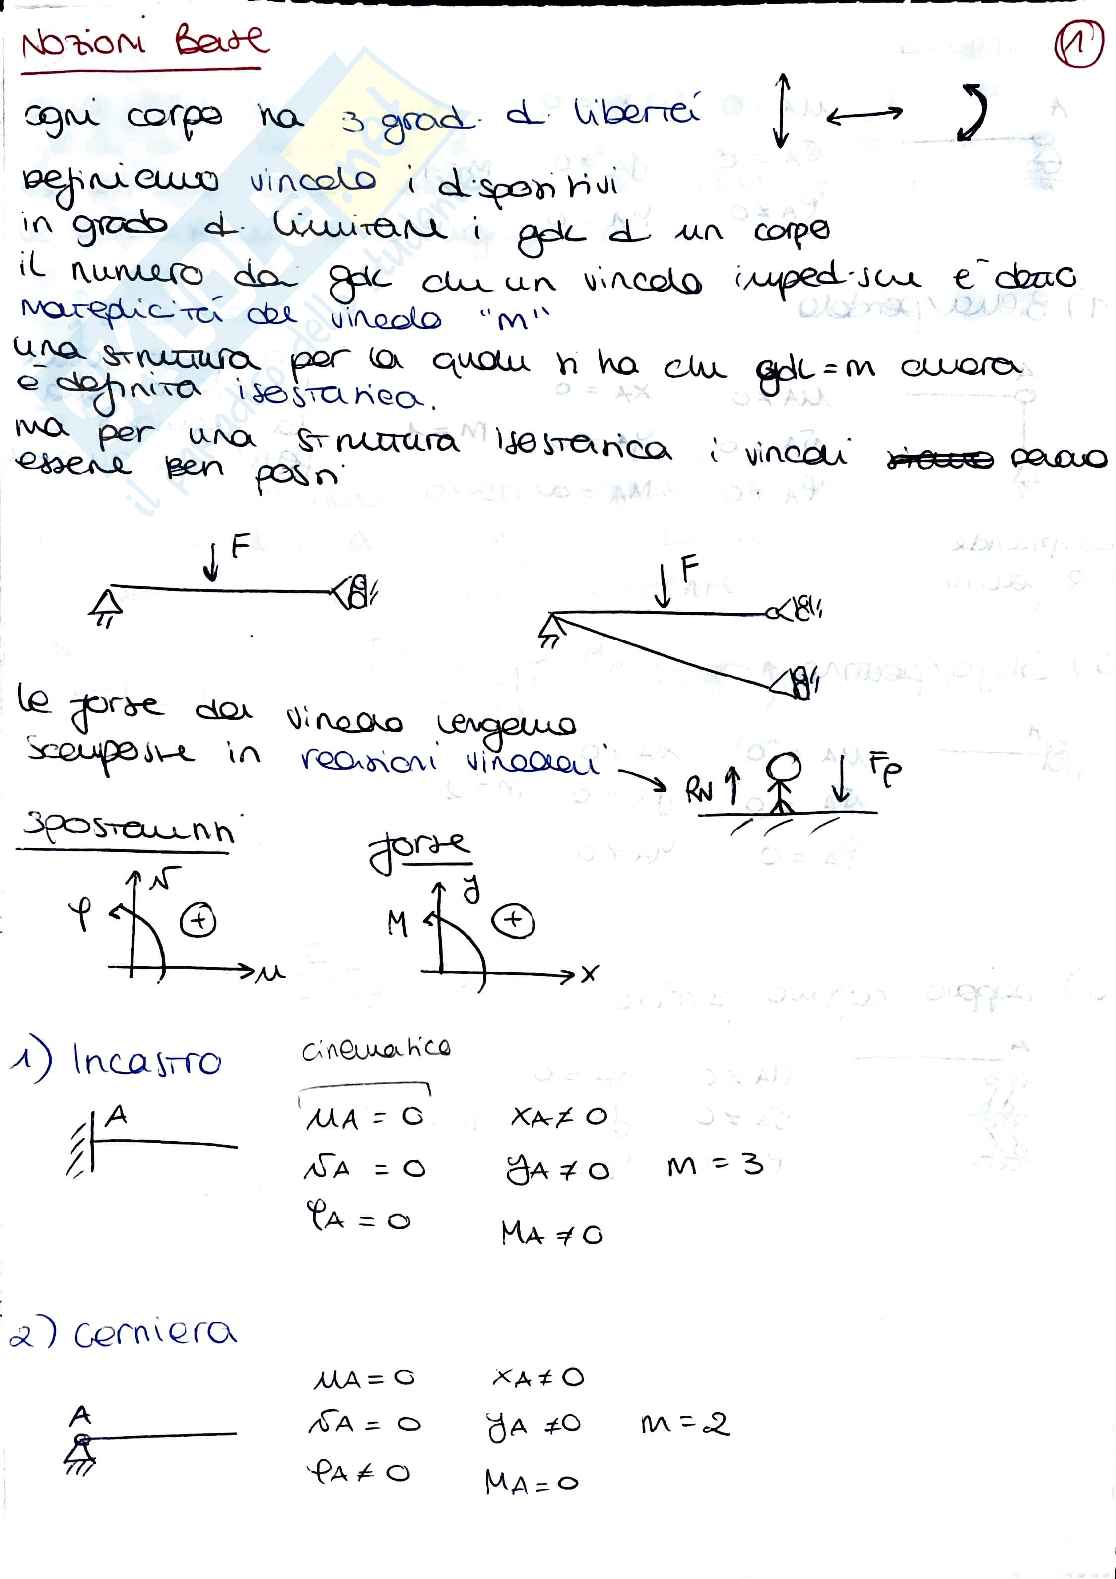 Nozioni Base
1
ogni corpo ha 3 gradi di libertà
Definiamo vincolo i dispositivi
in grado di limitare i gdl di un corpo
il numero dei gdl che un vincolo impedisce è detto
Molteplicità del vincolo "m"
una struttura per la quale si ha che gdl = m allora
è definita isostatica.
ma per una struttura isostatica i vincoli devono
essere ben posti
F
F
le forze dei vincoli vengono
scomposte in reazioni vincolari
RN Fp
Spostamenti
forze
v
φ + u
y
M + x
1) Incastro
cinematico
A
uA = 0 xA ≠ 0
vA = 0 yA ≠ 0 m = 3
φA = 0 MA ≠ 0
2) Cerniera
A
uA = 0 xA ≠ 0
vA = 0 yA ≠ 0 m = 2
φA ≠ 0 MA = 0